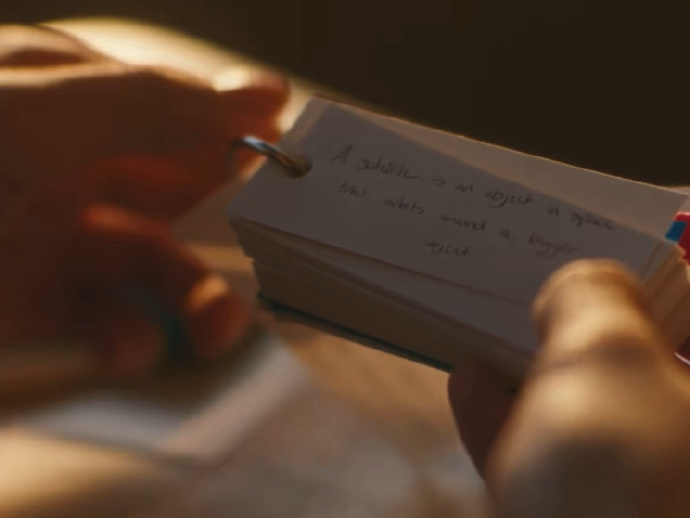 A satellite is an object in space
that orbits around a bigger
object